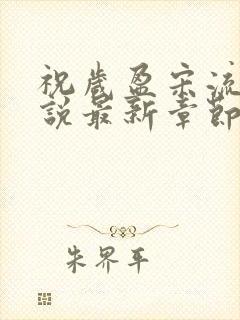 祝岁盈宋流
說最新章節
朱界平